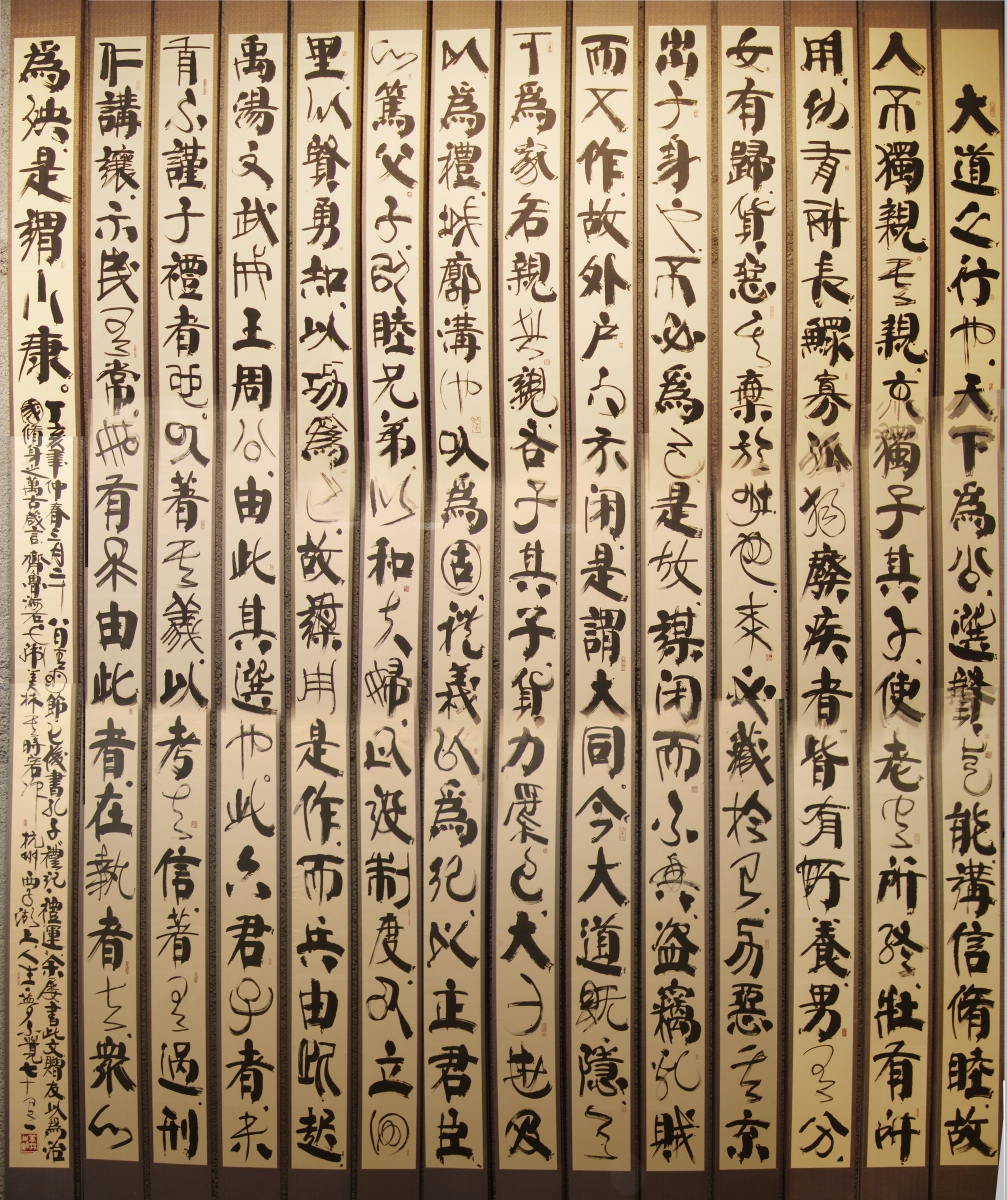 大道之行也天下為公選賢與能講信脩睦故
人不獨親其親不獨子其子使老有所終壯有所
用幼有所長鰥寡孤獨廢疾者皆有所養男有分
女有歸貨惡其棄於地也不必藏於己力惡其不
出于身也不必為己是故謀閉而不興盜竊亂賊
而不作故外戶而不閉是謂大同今大道既隱天
下為家各親其親各子其子貨力為己大人世及
以為禮城郭溝池以為固禮義以為紀以正君臣
以篤父子以睦兄弟以和夫婦以設制度以立田
里以賢勇知以功為己故謀用是作而兵由此起
禹湯文武成王周公由此其選也此六君子者未
有不謹于禮者也以著其義以考其信著有過刑
仁講讓示民有常如有不由此者在執者去眾以
為殃是謂小康。
丁亥年仲春二月二十八日節之後書孔子禮記禮運余屢書此文贈友以為治
國脩身之萬古警言齊魯海右時客於杭州西子湖上七十有二